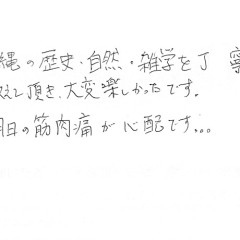 縄の歴史・自然・雑学を丁寧
教えて頂き、大変楽しかったです。
明日の筋肉痛が心配です...